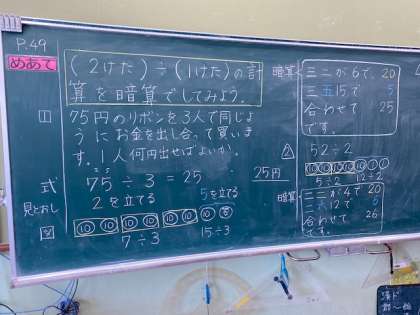 P.49
めあて
(2けた)÷(1けた)の計
算を暗算でしてみよう。
1
75円のリボンを3人で同じよ
うにお金を出し合って買いま
す。1人何円出せばよいか。
式
75÷3=25
25円
見とおし
2を立てる
5を立てる
図
⑩⑩ ⑩⑩ ⑩⑩ ⑩⑤
7÷3
15÷3
暗算
三二が6で、20
三五15で 5
合わせて 25
です。
2
52÷2
⑩⑩⑩⑩⑩①①
5÷2 12÷2
暗算
二二が4で 20
二六12で 6
合わせて 26
です。